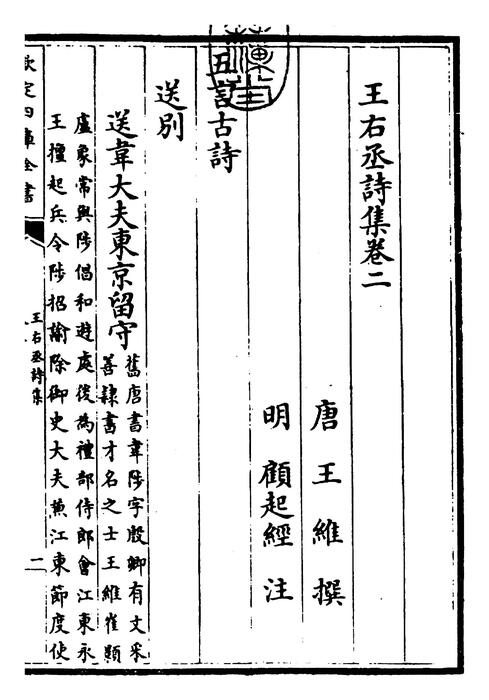 王右丞詩集卷二
唐 王維 撰
明 顧起經 注
五言古詩
送別
送韋大夫東京留守
舊唐書韋陟字殷卿有文采
善隸書才名之士王維崔顥
盧象常與陟唱和遊處後為禮部侍郎會江東永
王擅起兵令陟招諭除御史大夫兼江東節度使
欽定四庫全書
王右丞詩集